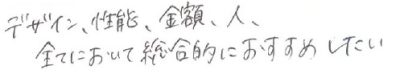 デザイン、性能、金額、人、
全てにおいて総合的におすすめしたい